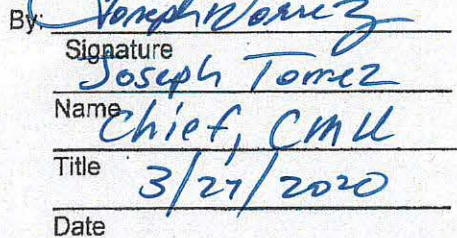 By: Joseph Torrez
Signature
Joseph Torrez
Name
Chief, CMU
Title
3/27/2020
Date